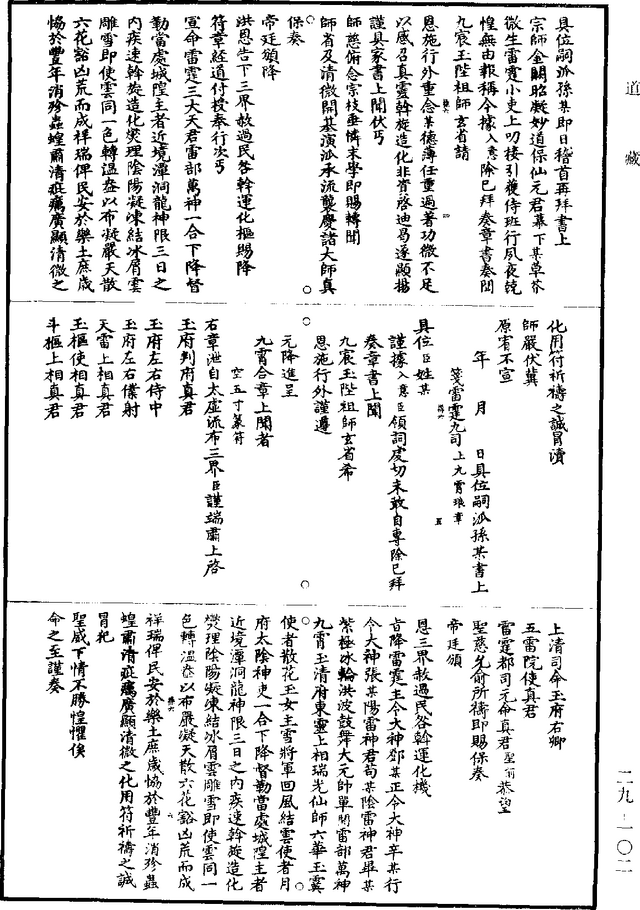 道藏
具位嗣派孫某即日稽首再拜書上
宗師金闕昭凝妙道保仙元君幕下某草芥
微生雷霆小吏上叨接引獲侍班行夙夜兢
惶無由報稱今據入意除已拜奏章書奏聞
九宸玉陛祖師玄省請
恩施行外重念某德薄任重過著功微不足
以感召真靈斡旋造化非資啓迪曷遂顯揚
謹具家書上聞伏丐
師慈俯念宗枝垂憐末學即賜轉聞
師省及清微開基演派承流襲慶諸大師真
保奏
帝廷頒降
洪恩告下三界赦過民咎斡運化樞賜降
符章經道付授奉行次丐
宣命雷霆三大天君雷部萬神一合下降督
勒當處城隍主者近境潭洞龍神限三日之
內疾速斡旋造化燮理陰陽凝凍結冰屑雲
雕雪即使雲同一色轉溫燠以布凝嚴天散
六花豁凶荒而成祥瑞俾民安於樂土庶歲
恊於豐年消殄蟲蝗肅清疵癘廣顯清微之
化用符祈禱之誠冒瀆
師嚴伏冀
原宥不宣
年 月 日具位嗣派孫某書上
箋雷霆九司上九霄琅章
具位臣姓某
謹據入意臣領詞虔切未敢自專除已拜
奏章書上聞
九宸玉陛祖師玄省希
恩施行外謹遵
元降進呈
九霄合章上聞者
空五寸篆符
右章泄自太虛流布三界臣謹端肅上啓
玉府判府真君
玉府左右侍中
玉府左右僕射
天雷上相真君
玉樞使相真君
斗樞上相真君
上清司命玉府右卿
五雷院使真君
雷霆都司元命真君聖前恭望
聖慈允俞所禱即賜保奏
帝廷頒
恩三界赦過民咎斡運化機
旨降雷霆主令大神鄧某正令大神辛某行
令大神張某陽雷神君苟某陰雷神君畢某
紫極冰輪洪波鼓舞大元帥單閼雷部萬神
九霄玉清府東靈上相瑞光仙師六華玉真
使者散花玉女主雪將軍回風結雲使者月
府太陰神吏一合下降督勒當處城隍主者
近境潭洞龍神限三日之內疾速斡旋造化
燮理陰陽凝凍結冰屑雲雕雪即使雲同一
色轉溫燠以布嚴凝天散六花豁凶荒而成
祥瑞俾民安於樂土庶歲恊於豐年消殄蟲
蝗肅清疵癘廣顯清微之化用符祈禱之誠
冒犯
聖威下情不勝惶懼俟
命之至謹奏
二九－一〇二